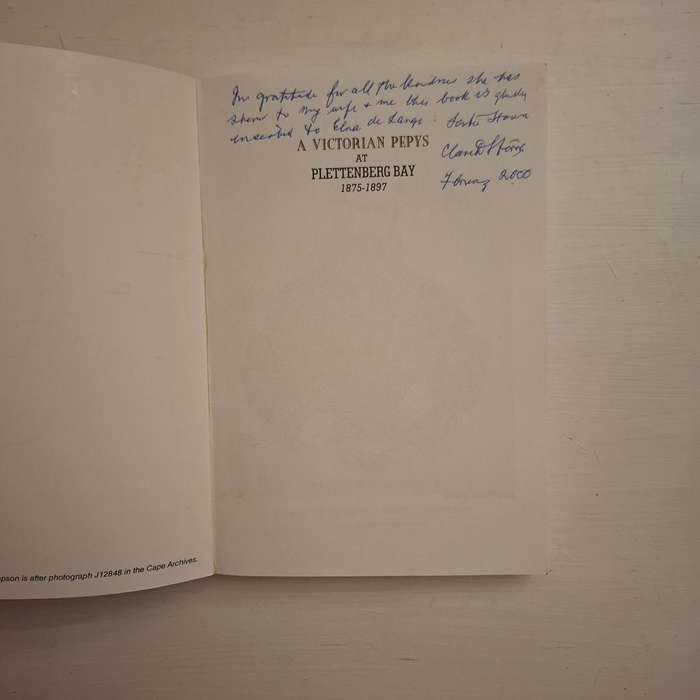 In gratitude for all the kindness she has
shown to my wife & me this book is gladly
inscribed to Elna de Lange
A VICTORIAN PEPYS
AT
PLETTENBERG BAY
1875-1897
February 2000
pson is after photograph J12848 in the Cape Archives.